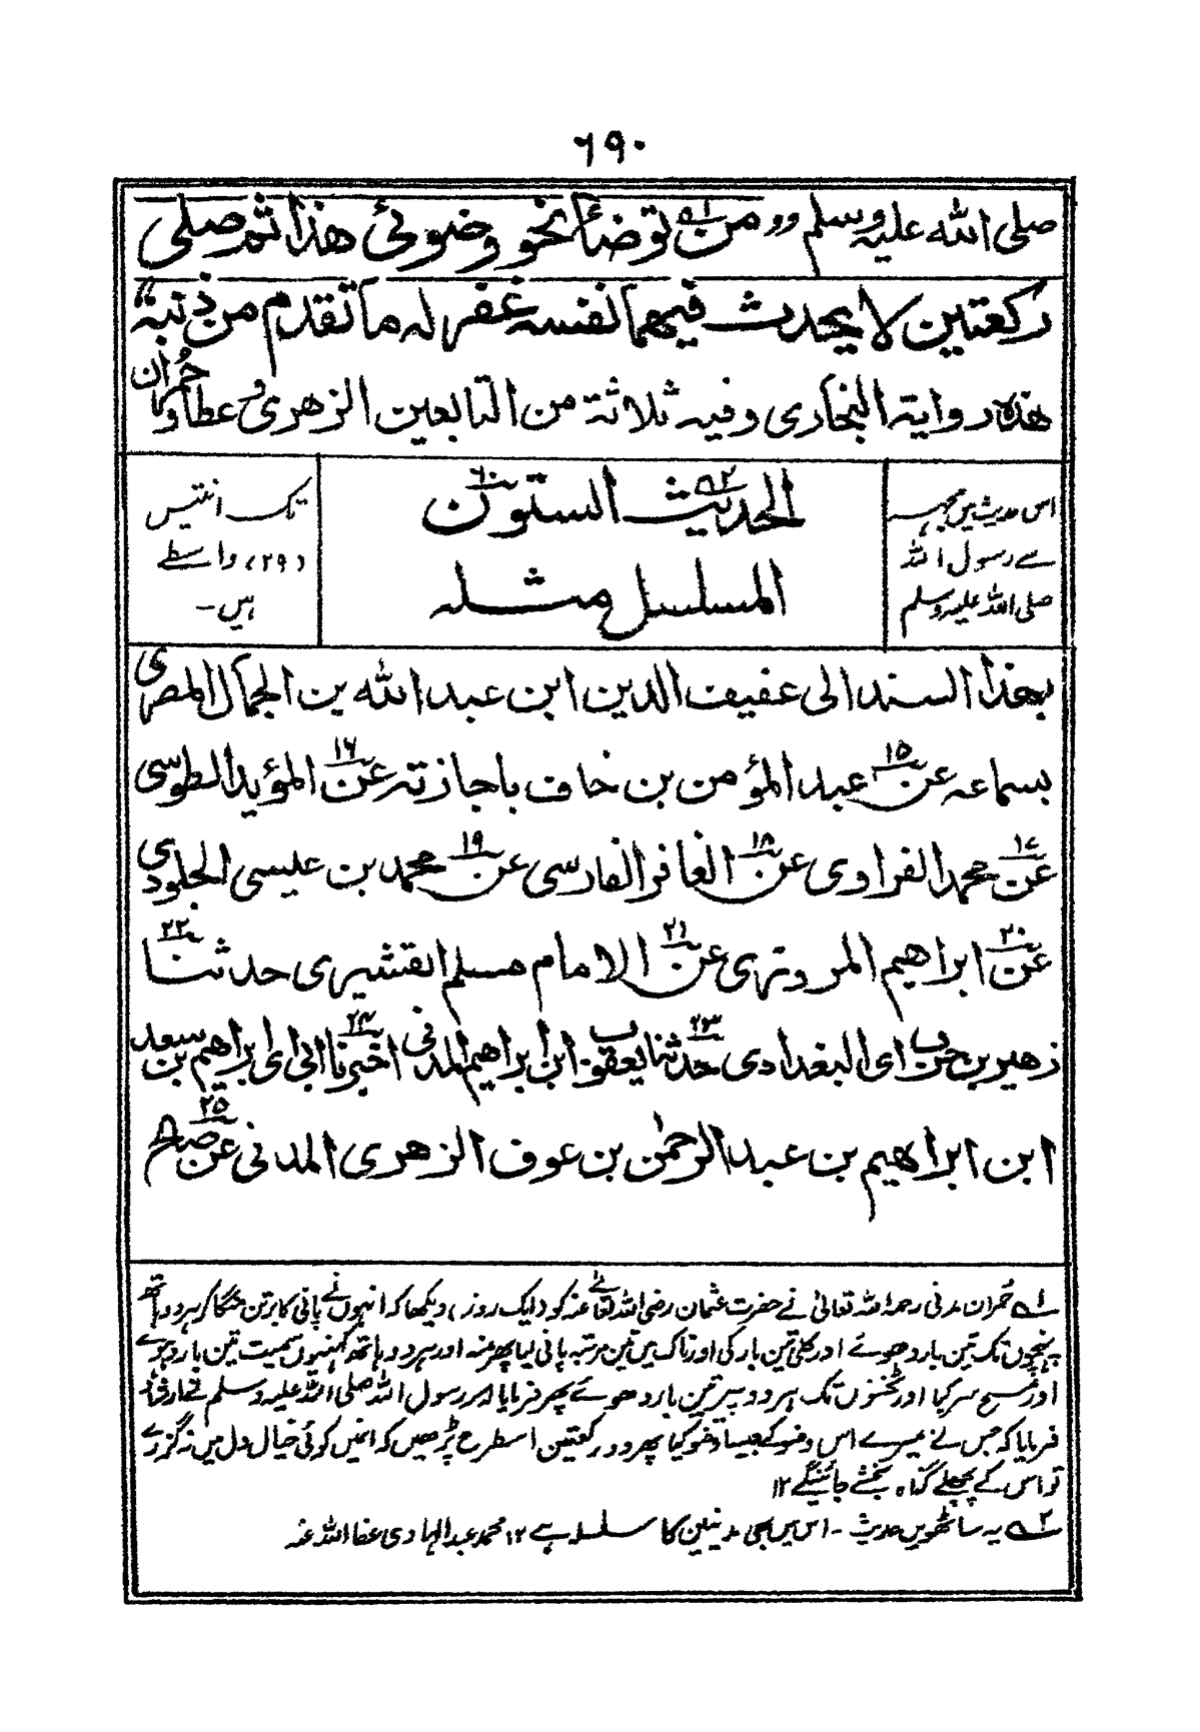 ۶۹۰
صلی اللہ علیہ وسلم وو من توضأ نحو وضوئی هذا ثم صلی
رکعتین لا یحدث فیهما نفسه غفر له ما تقدم من ذنبه
هذه روایة البخاری وفیه ثلاثة من التابعین الزهری وعطاء وحمران
اس حدیث میں مجھ سے
سے رسول اللہ
صلی اللہ علیہ وسلم
الحدیث الستون ۶۰
المسلسل مثله
تک انتیس
(۲۹) واسطے
ہیں۔
بهذا السند الی عفیف الدین ابن عبد الله بن الجمال المصری
بسماعه عن ۱۵ عبد المؤمن بن خلف باجازته عن ۱۶ المؤید الطوسی
عن ۱۷ محمد الفراوی عن ۱۸ الغافر الفارسی عن ۱۹ محمد بن عیسی الجلودی
عن ۲۰ ابراهیم المروزی عن ۲۱ الامام مسلم القشیری حدثنا ۲۲
زهیر بن حرب ای البغدادی حدثنا ۲۳ یعقوب ابن ابراهیم المدنی اخبرنا ۲۴ ابی ای ابراهیم بن سعد
ابن ابراهیم بن عبد الرحمٰن بن عوف الزهری المدنی عن ۲۵ صالح
۱؎ حُمران مدنی رحمہ اللہ تعالیٰ نے حضرت عثمان رضی اللہ تعالے عنہ کو (ایک روز) دیکھا کہ انہوں نے پانی کا برتن منگا کر ہر دو ہاتھ
پہنچوں تک تین بار دھوئے اور کلی تین بار کی اور ناک میں تین مرتبہ پانی لیا پھر منہ اور ہر دو ہاتھ کہنیوں سمیت تین بار دھوئے
اور مسح سر کیا اور ٹخنوں تک ہر دو پیر تین بار دھوئے پھر فرمایا اور رسول اللہ صلی اللہ علیہ وسلم نے ارشاد
فرمایا کہ جس نے میرے اس وضو کے جیسا وضو کیا پھر دو رکعتین اسطرح پڑھیں کہ انمیں کوئی خیال دل میں نہ گزرے
تو اس کے پچھلے گناہ بخشے جائینگے ۱۲
۲؎ یہ ساٹھویں حدیث ۔ اس میں بھی مدنیین کا سلسلہ ہے ۱۲ محمد عبد الہادی عفا اللہ عنہ